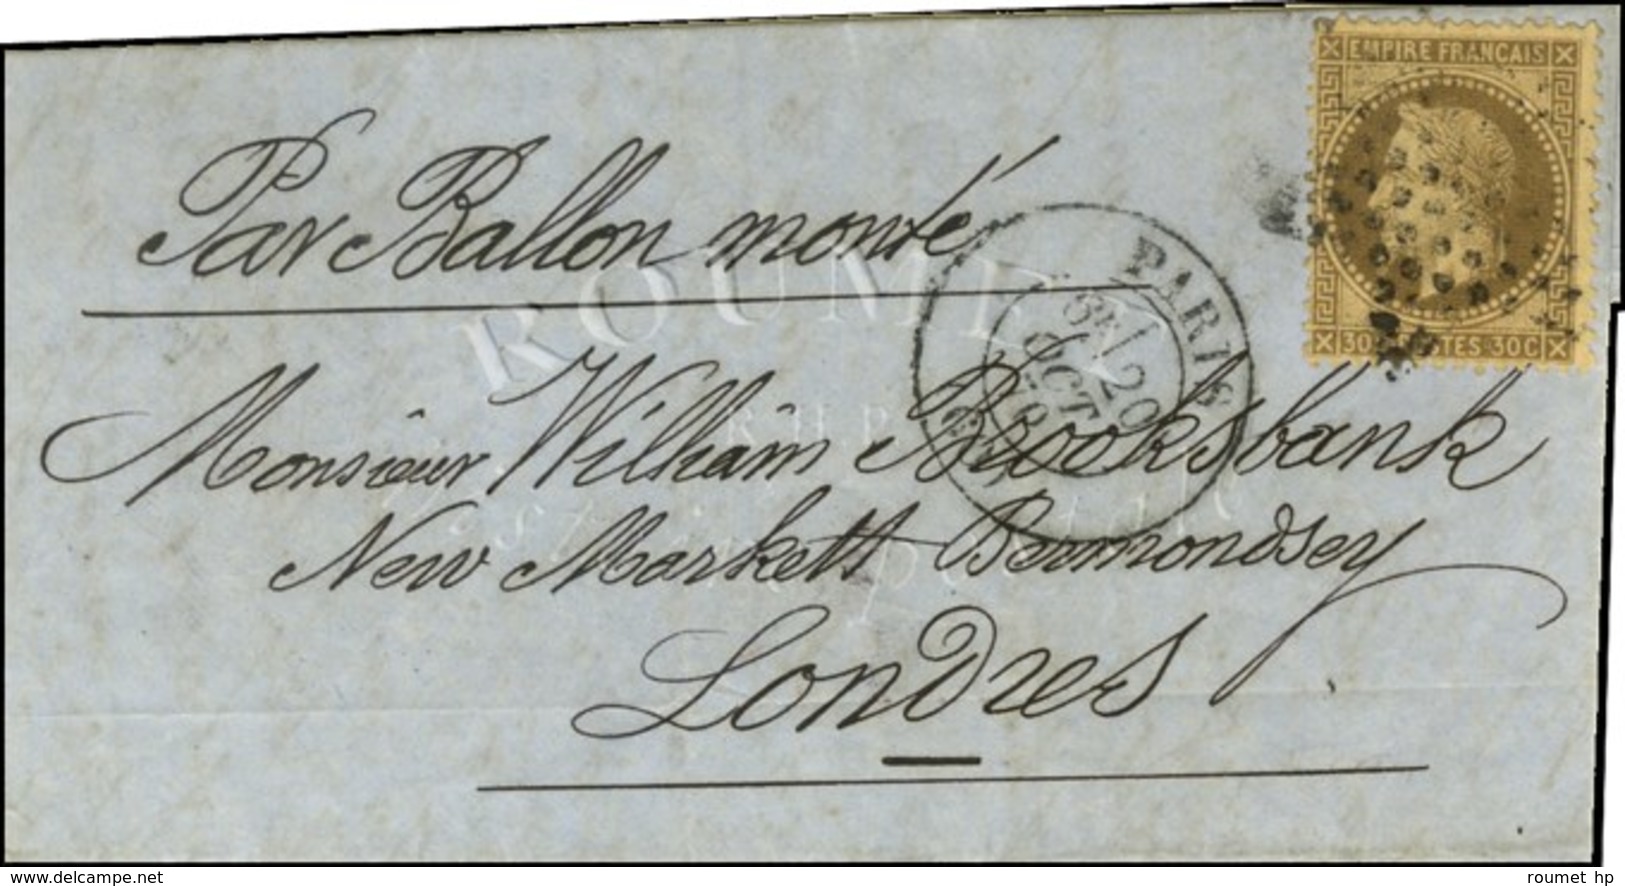 EMPIRE FRANÇAIS
30C POSTES 30C
Par Ballon monté
PARIS
20
OCT
70
ROUMET
Monsieur William Brooksbank
New Markett Bermondsey
Londres
www.delcampe.net
roumet hp